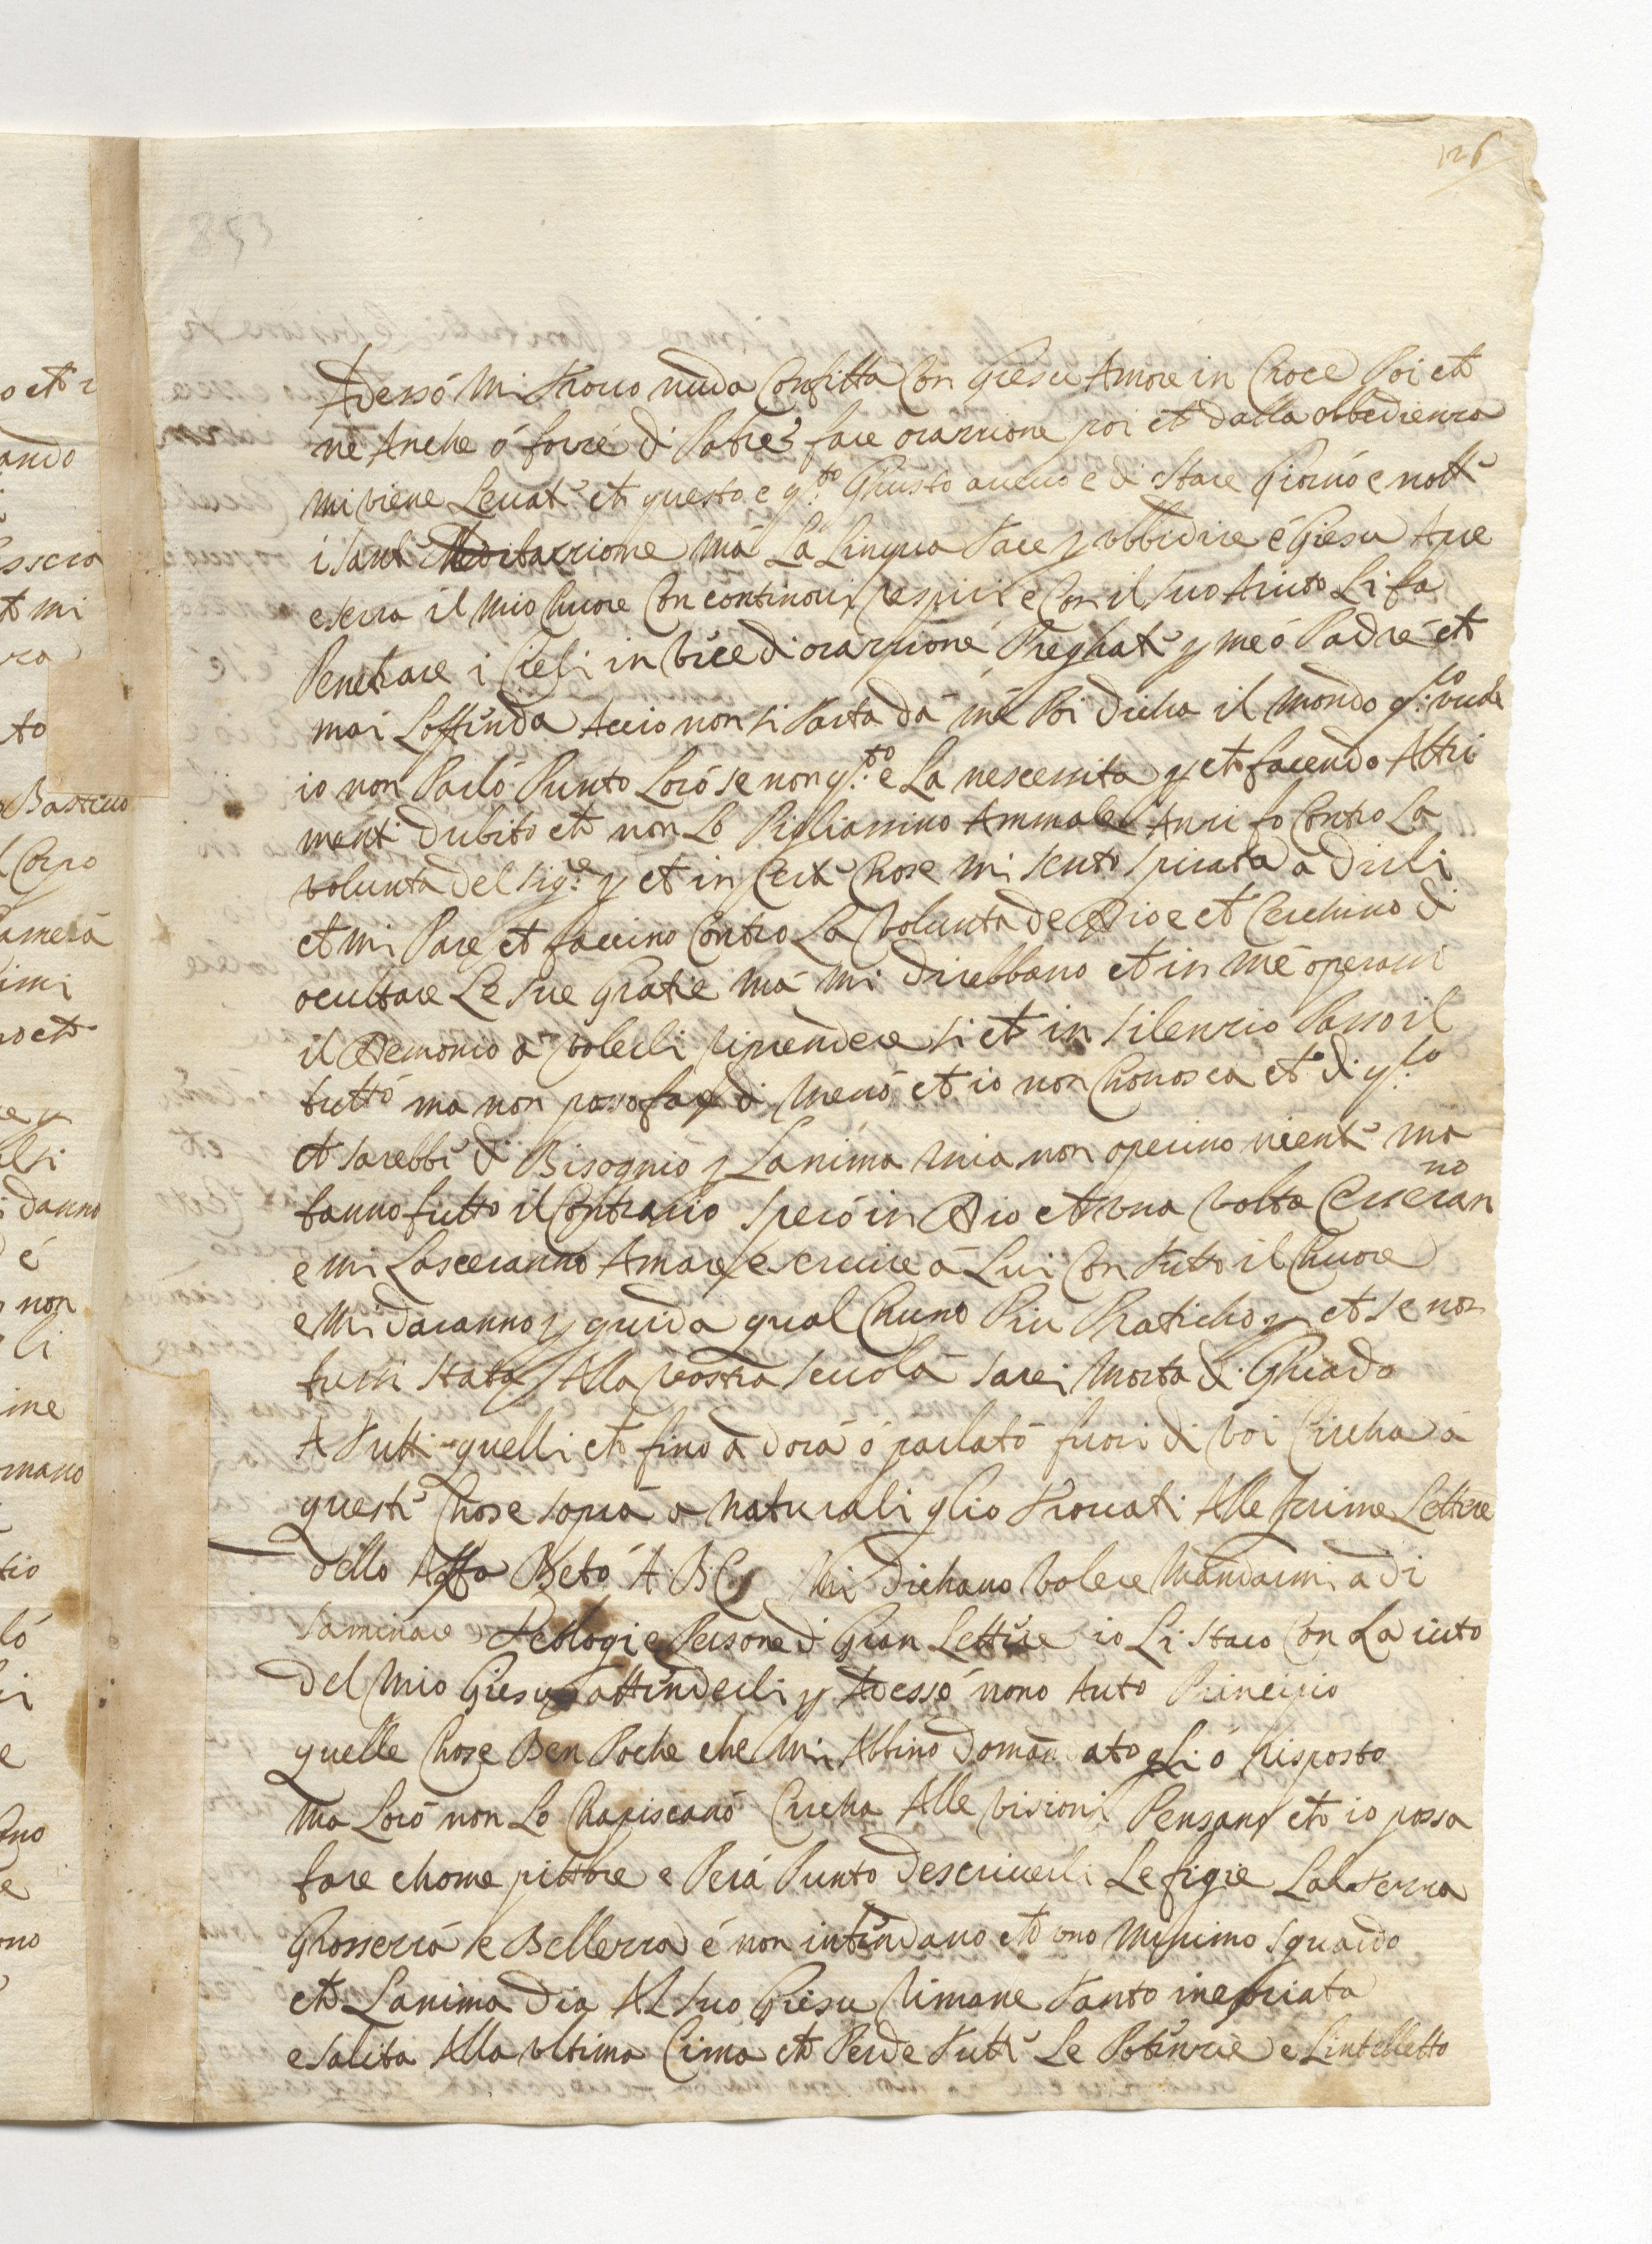 126
853
Adessó Mi trouo nuda Confitta Con Giesu Amore in Croce Poi ch
ne Anche ó forze di Potere fare orazzione poi ch dalla obbedienza
mi viene Leuate ch questo e q.to Ghusto aueuo e di Stare Giorno e notte
i Sante Meditazzione má La Lingua tace p obbidire é Giesu Apre
e serra il mio Chuore Con continoui respiri e Con il suo Aiuto Li fa
Penetrare i Cieli in Vice di orazzione Preghate p me ó Padre ch
mai Loffenda Accio non si Parta da me Poi Dicha il mondo q.to vuole
io non Parló Punto Loró se non q.to e La nescessita p ch facendo Altri
menti dubito ch non Lo Pigliassino Ammale Anzi fo Contro La
volunta del Sig.re p ch in Certe Chose mi sento spirata a dirli
ch mi Pare ch faccino Contro La Volunta de Dio e ch Cerchino di
ocultare Le sue Gratie má Mi direbbano ch in mé operassi
il Demonio á volerli riprendere si ch in silenzio Passo il
tuttó ma non posso far di menó ch io non Chonosca ch di q.to
ch sarebbe di Bisogniό p Lanima mia non operino niente ma
fanno tutto il Contrario Speró in Dio ch una volta Cesseran
no
e mi Lasceranno Amare e seruire á Lui Con tutto il Chuore
e Mi daranno p guida qual Chuno Piu Praticho p ch se non
fussi stata Alla vostra scuola sarei Morta di Ghiado
A tutti quelli ch fino á dora ó parlató fuori di voi Circha á
queste Chose sopra a naturali glio trouati Alle prime Lettere
dello Alfa Betό A B C Mi dichano volere Mandarmi a di
saminare Teologi e Persone di Gran Lettere io Li starò Con La iuto
del Mio Giesu attenderli p Adessó nono Auto Principio
quelle Chose Ben Poche che Mi Abbino domandato gli ó risposto
Ma Loró non Lo Chapiscanó Circha Alle visioni Pensano ch io possa
fare chome pittore e Perá Punto descriuerli Le figie Lalterra
Grosserá e Bellezza é non intendano ch uno minimo sguardo
ch Lanima dia Al suo Giesu rimane tanto inebriata
e salita Alla ultima Cima ch Perde tute Le Potenzie e Lintelletto